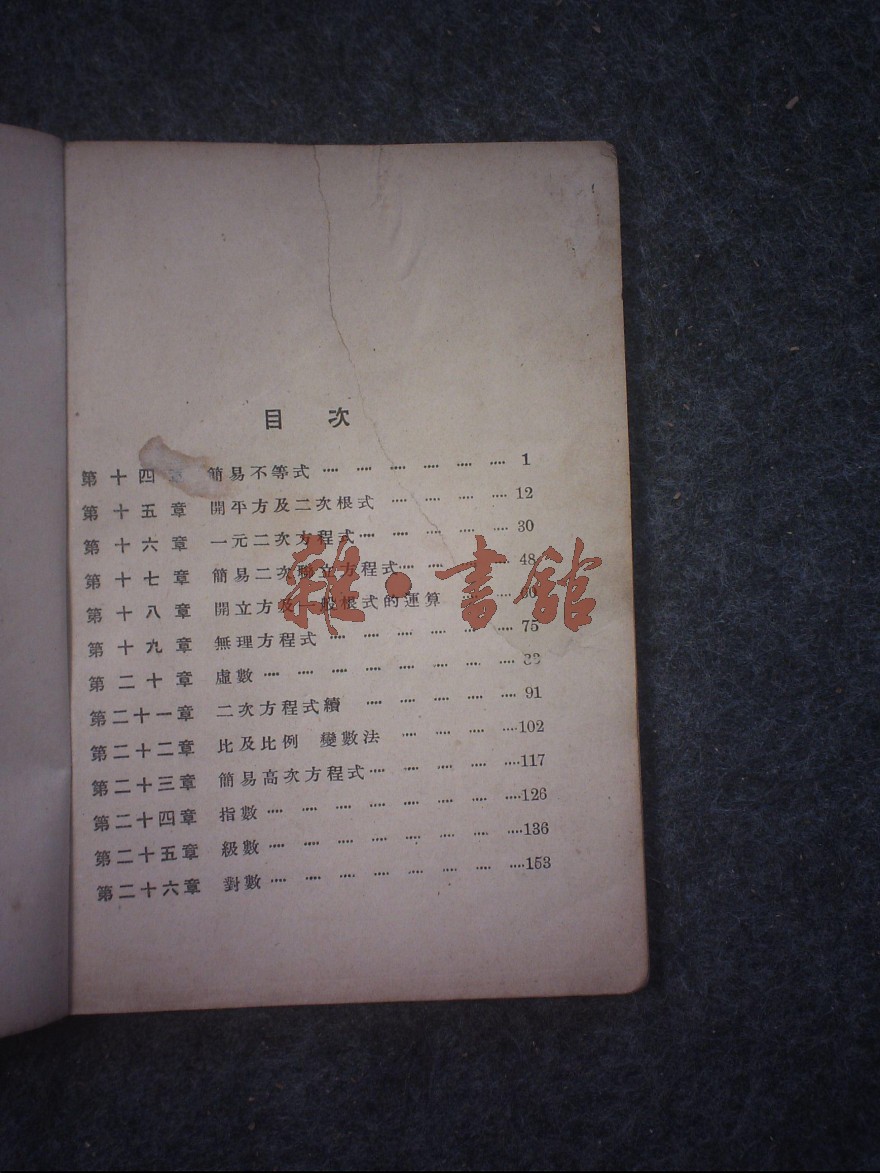 目 次
第十四章 簡易不等式 ···· ···· ···· ···· ···· ···· 1
第十五章 開平方及二次根式 ···· ···· ···· ···· 12
第十六章 一元二次方程式 ···· ···· ···· ···· ···· 30
第十七章 簡易二次聯立方程式 ···· ···· 48
第十八章 開立方及一般根式的運算
第十九章 無理方程式 ···· ···· ···· ···· ···· ···· 75
第二十章 虛數 ···· ···· ···· ···· ···· ···· ···· ····
第二十一章 二次方程式續 ···· ···· ···· ···· ···· 91
第二十二章 比及比例 變數法 ···· ···· ···· ····102
第二十三章 簡易高次方程式 ···· ···· ···· ···· ····117
第二十四章 指數 ···· ···· ···· ···· ···· ···· ···· ····126
第二十五章 級數 ···· ···· ···· ···· ···· ···· ···· ····136
第二十六章 對數 ···· ···· ···· ···· ···· ···· ···· ····153
雜·書館